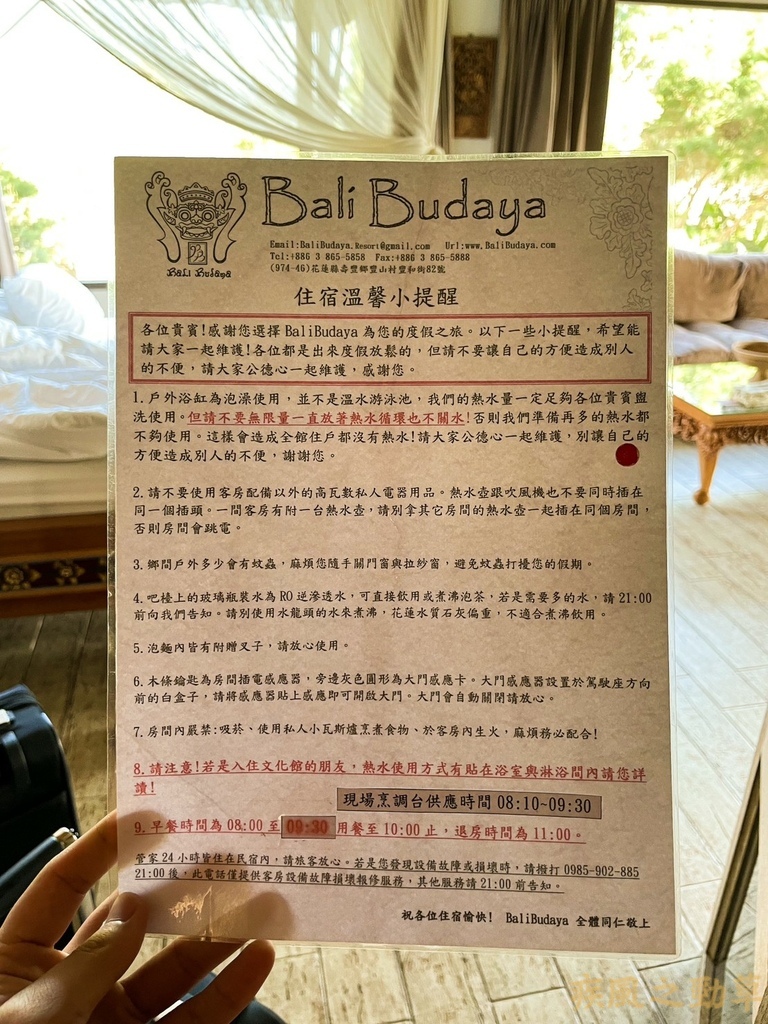 Bali Budaya
Bali Budaya
Email:BaliBudaya.Resort@gmail.com Url:www.BaliBudaya.com
Tel:+886 3 865-5858 Fax:+886 3 865-5888
(974-46)花蓮縣壽豐鄉豐山村豐和街82號
住宿溫馨小提醒
各位貴賓!感謝您選擇 BaliBudaya 為您的度假之旅。以下一些小提醒，希望能
請大家一起維護!各位都是出來度假放鬆的，但請不要讓自己的方便造成別人
的不便，請大家公德心一起維護，感謝您。
1.戶外浴缸為泡澡使用，並不是溫水游泳池，我們的熱水量一定足夠各位貴賓盥
洗使用。但請不要無限量一直放著熱水循環也不關水!否則我們準備再多的熱水都
不夠使用。這樣會造成全館住戶都沒有熱水!請大家公德心一起維護，別讓自己的
方便造成別人的不便，謝謝您。
2.請不要使用客房配備以外的高瓦數私人電器用品。熱水壺跟吹風機也不要同時插在
同一個插頭。一間客房有附一台熱水壺，請別拿其它房間的熱水壺一起插在同個房間，
否則房間會跳電。
3.鄉間戶外多少會有蚊蟲，麻煩您隨手關門窗與拉紗窗，避免蚊蟲打擾您的假期。
4.吧檯上的玻璃瓶裝水為 RO 逆滲透水，可直接飲用或煮沸泡茶，若是需要多的水，請 21:00
前向我們告知。請別使用水龍頭的水來煮沸，花蓮水質石灰偏重，不適合煮沸飲用。
5.泡麵內皆有附贈叉子，請放心使用。
6.木條鑰匙為房間插電感應器，旁邊灰色圓形為大門感應卡。大門感應器設置於駕駛座方向
前的白盒子，請將感應器貼上感應即可開啟大門。大門會自動關閉請放心。
7.房間內嚴禁:吸菸、使用私人小瓦斯爐烹煮食物、於客房內生火，麻煩務必配合!
8.請注意!若是入住文化館的朋友，熱水使用方式有貼在浴室與淋浴間內請您詳
讀!
現場烹調台供應時間 08:10~09:30
9.早餐時間為 08:00 至 09:30 用餐至 10:00 止，退房時間為 11:00。
管家 24 小時皆住在民宿內，請旅客放心。若是您發現設備故障或損壞時，請撥打 0985-902-885
21:00 後，此電話僅提供客房設備故障損壞報修服務，其他服務請 21:00 前告知。
祝各位住宿愉快! BaliBudaya 全體同仁敬上